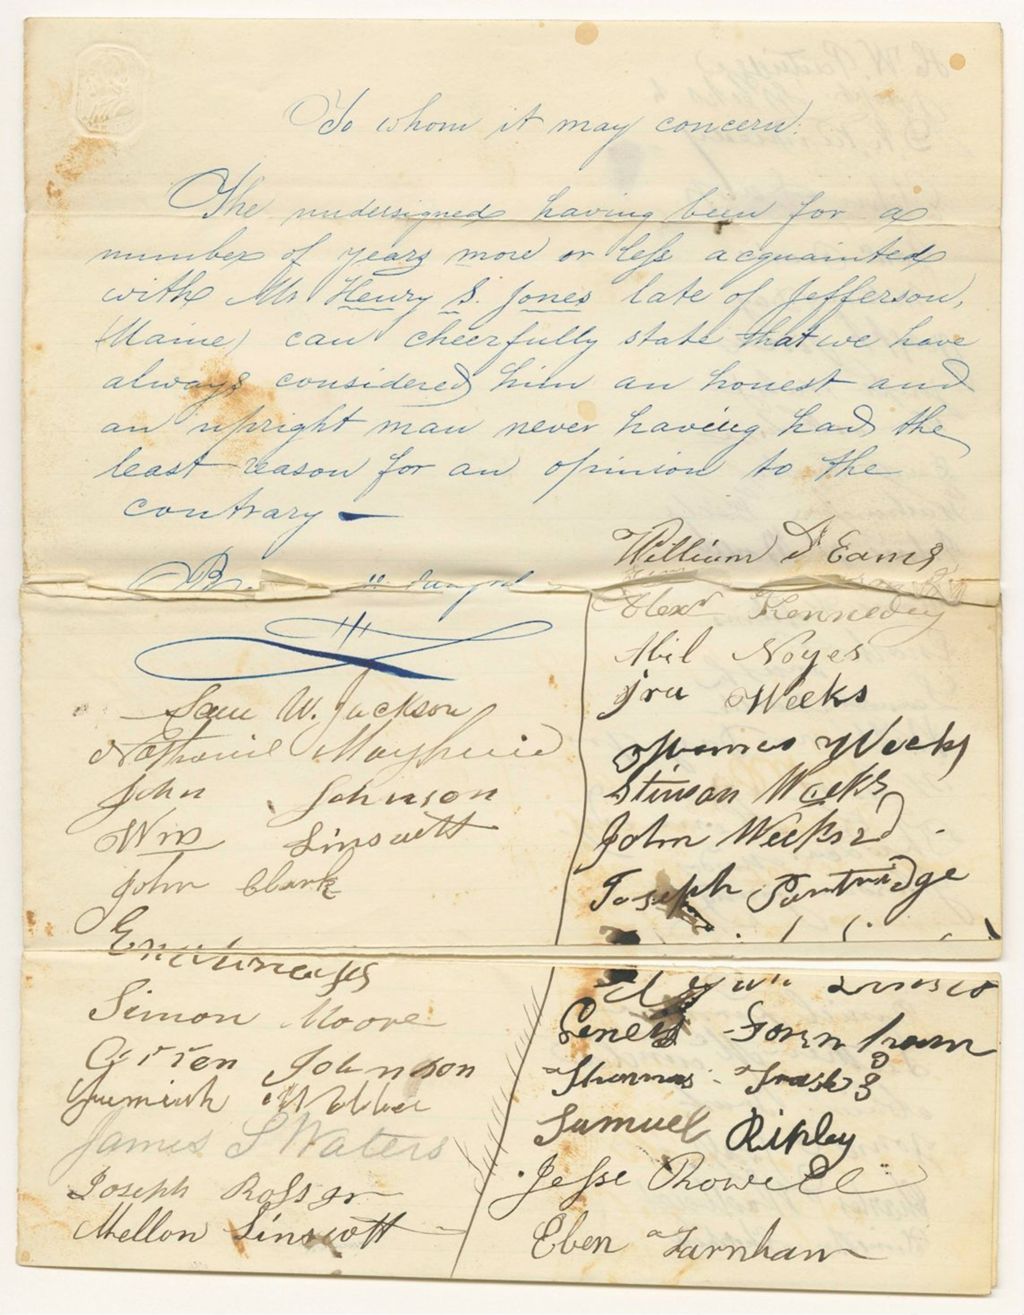 To whom it may concern.
The undersigned having been for a
number of years more or less acquainted
with Mr Henry S. Jones late of Jefferson,
(Maine) can cheerfully state that we have
always considered him an honest and
an upright man never having had the
least reason for an opinion to the
contrary —
Sam W. Jackson
John Johnson
Wm Linscott
John Clark
Simon Moore
Johnson
James S Waters
Joseph
Mellon Linscott
William
Alexr Kennedy
Noyes
Ira Weeks
Weeks
Stinson Weeks
John Weeks
Joseph Partridge
Thomas Trask
Samuel Ripley
Jesse Rowell
Eben Farnham